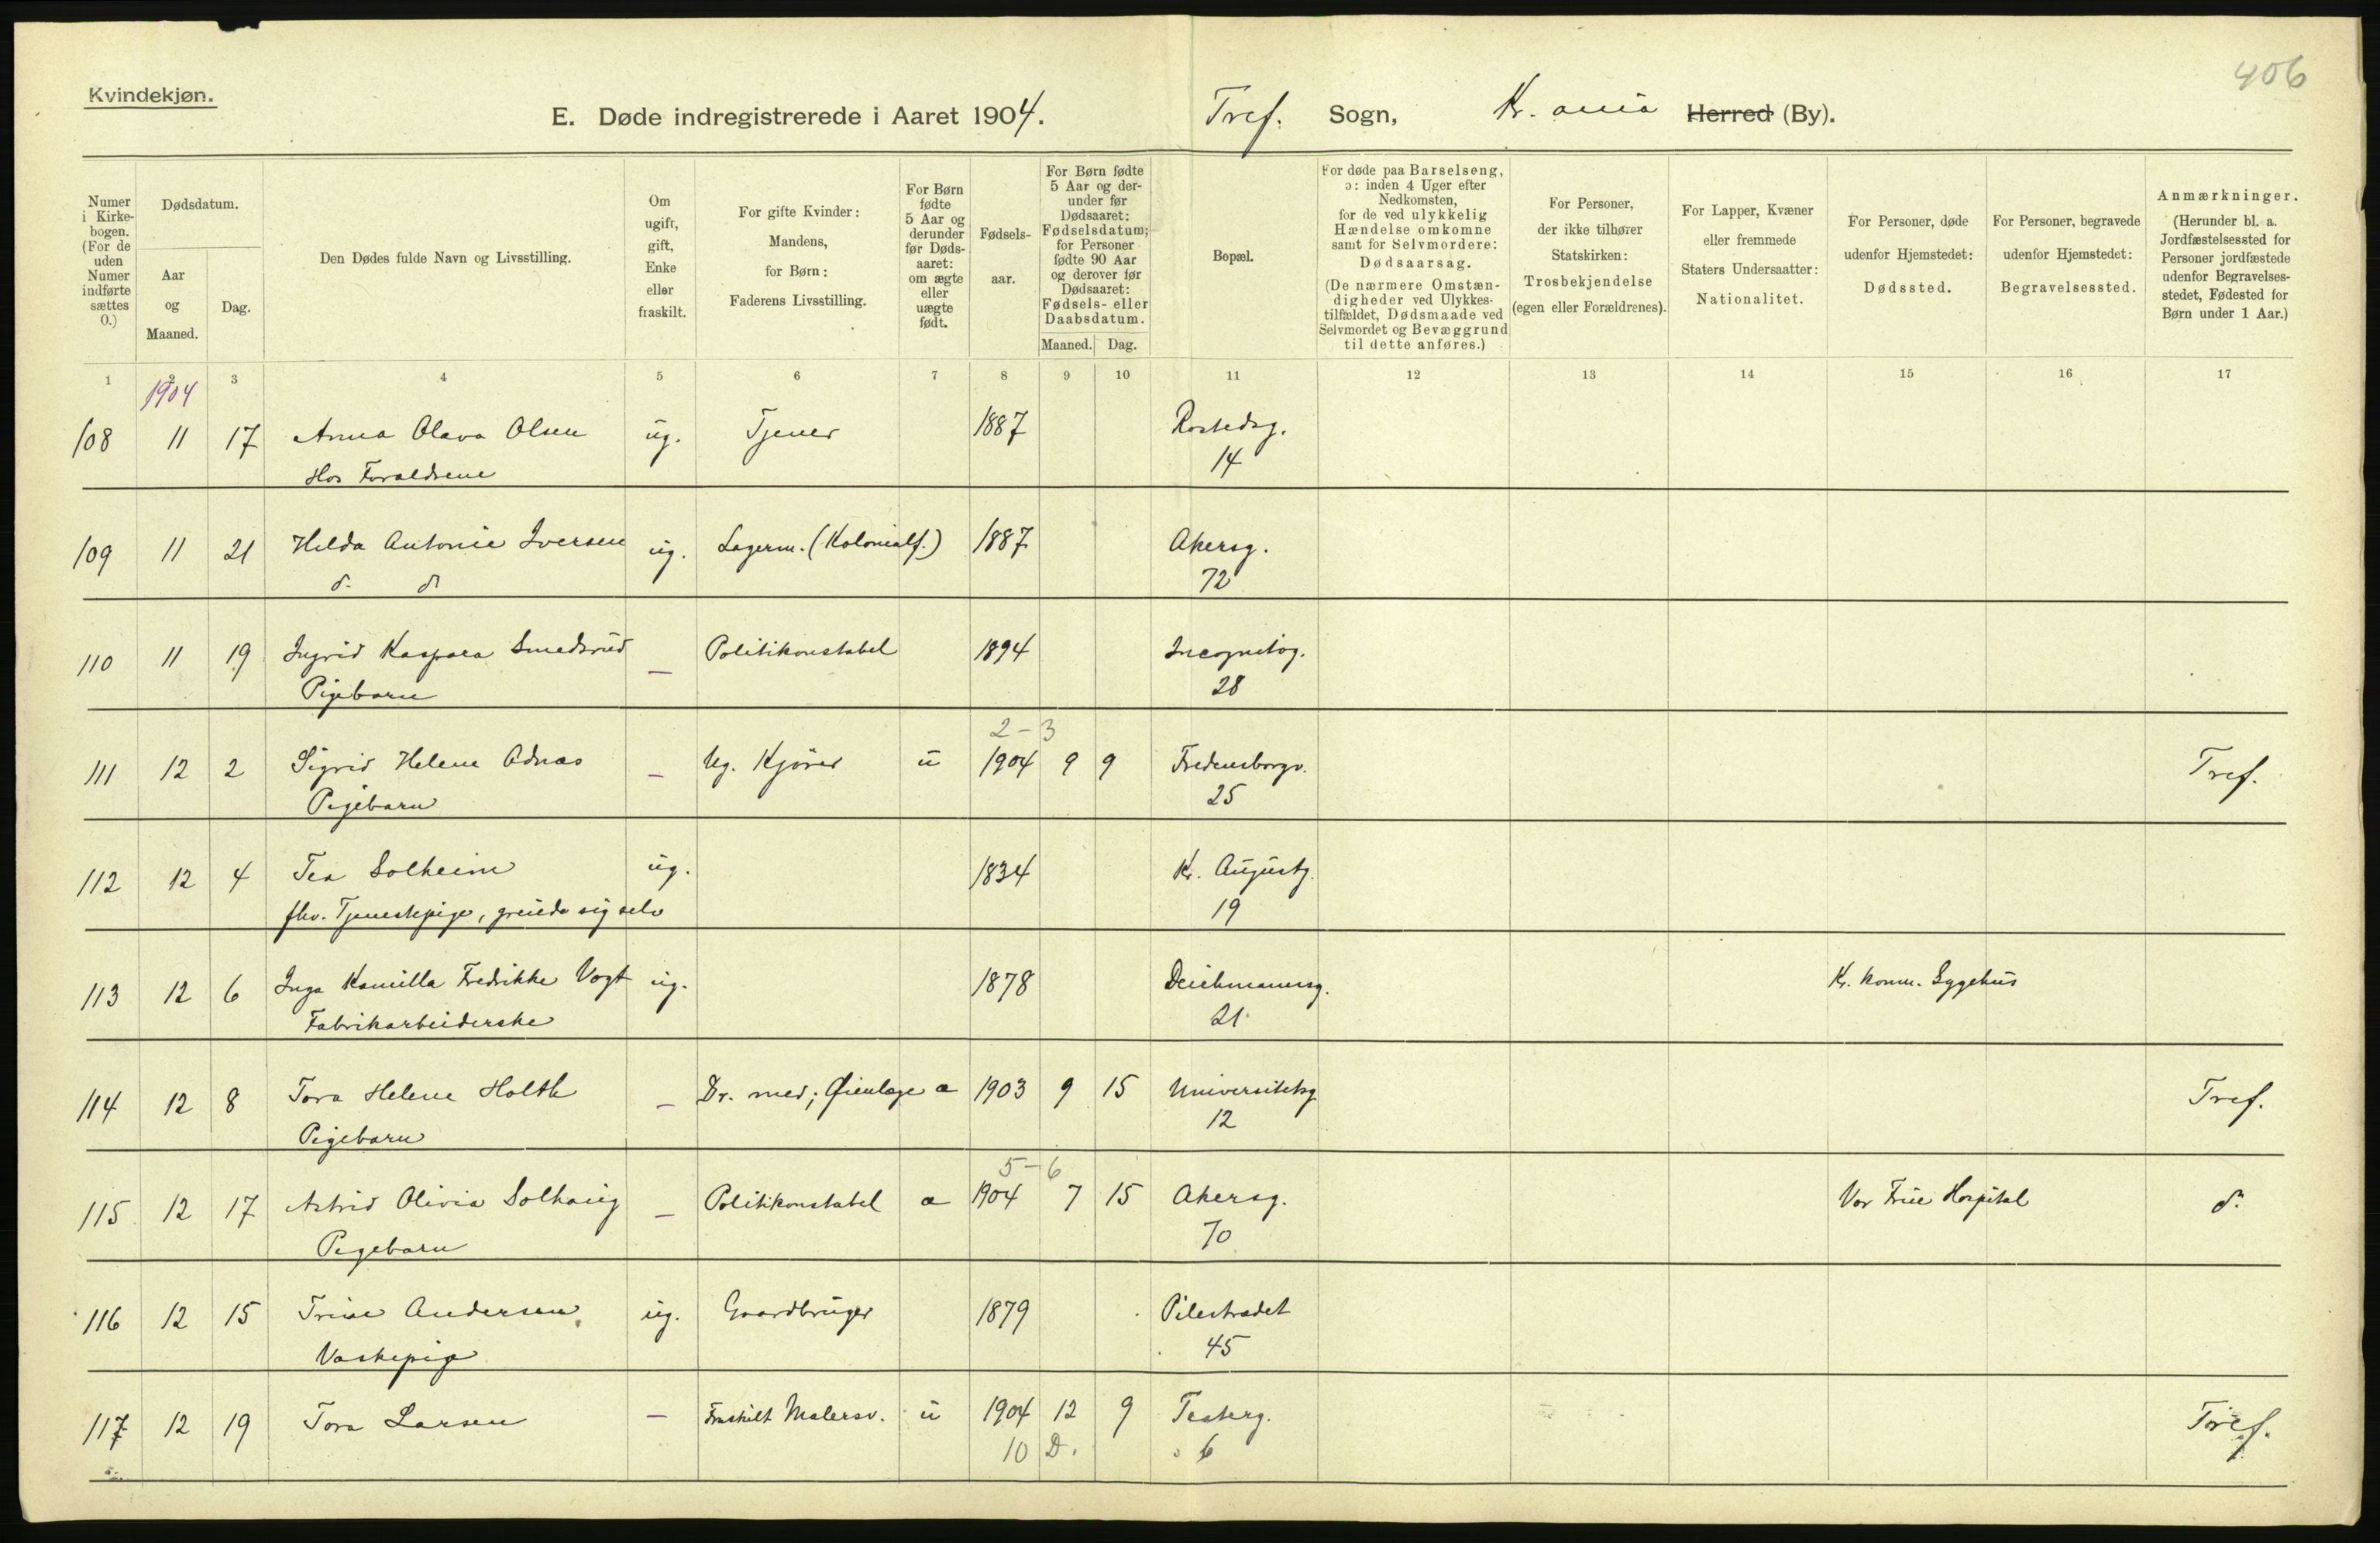 406
Kvindekjøn.
E. Døde indregistrerede i Aaret 1904. Tref. Sogn, Kr.ania Herred (By).
Numer i Kirkebogen. (For de uden Numer indførte sættes 0.)
Dødsdatum.
Aar og Maaned.
Dag.
Den Dødes fulde Navn og Livsstilling.
Om ugift, gift, Enke eller fraskilt.
For gifte Kvinder: Mandens, for Børn: Faderens Livsstilling.
For Børn fødte 5 Aar og derunder før Dødsaaret: om ægte eller uægte født.
Fødselsaar.
For Børn fødte 5 Aar og derunder før Dødsaaret: Fødselsdatum; for Personer fødte 90 Aar og derover før Dødsaaret: Fødsels- eller Daabsdatum.
Maaned. Dag.
Bopæl.
For døde paa Barselseng, ɔ: inden 4 Uger efter Nedkomsten, for de ved ulykkelig Hændelse omkomne samt for Selvmordere: Dødsaarsag. (De nærmere Omstændigheder ved Ulykkestilfældet, Dødsmaade ved Selvmordet og Bevæggrund til dette anføres.)
For Personer, der ikke tilhører Statskirken: Trosbekjendelse (egen eller Forældrenes).
For Lapper, Kvæner eller fremmede Staters Undersaatter: Nationalitet.
For Personer, døde udenfor Hjemstedet: Dødssted.
For Personer, begravede udenfor Hjemstedet: Begravelsessted.
Anmærkninger. (Herunder bl. a. Jordfæstelsessted for Personer jordfæstede udenfor Begravelsesstedet, Fødested for Børn under 1 Aar.)
1 2 3 4 5 6 7 8 9 10 11 12 13 14 15 16 17
1904
108 11 17 Anna Olava Olsen ug. Tjener 1887 Rostedsg.
Hos Forældrene 14
109 11 21 Hilda Antonie Iversen ug. Lagerm. (Kolonialf.) 1887 Akersg.
d. d. 72
110 11 19 Ingrid Kaspara Smedsrud — Politikonstabel 1894 Incognitog.
Pigebarn 28
2-3
111 12 2 Sigrid Helene Adnæs — Ug. Kjører u 1904 9 9 Fredensborgv. Tref.
Pigebarn 25
112 12 4 Tea Solheim ug. 1834 Kr. Augustg.
fhv. Tjenestepige, greiede sig selv 19
113 12 6 Inga Kamilla Fredrikke Vogt ug. 1878 Deichmannsg. Kr. komm. Sygehus
Fabrikarbeiderske 21
114 12 8 Tora Helene Holth — Dr. med; Øienlæge æ 1903 9 15 Universitetsg Tref.
Pigebarn 12
5-6
115 12 17 Astrid Olivia Solhaug — Politikonstabel æ 1904 7 15 Akersg. Vor Frue Hospital d.
Pigebarn 70
116 12 15 Trine Andersen ug. Gaardbruger 1879 Pilestrædet
Vaskepige 45
117 12 19 Tora Larsen — Fraskilt Malersv. u 1904 12 9 Tref.
10 D. 6